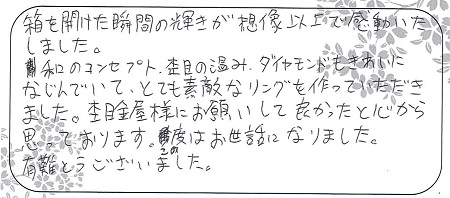 箱を開けた瞬間の輝きが想像以上で感動いた
しました。
和のコンセプト、杢目の温み、ダイヤモンドもきれいに
なじんでいて、とても素敵なリングを作っていただき
ました。杢目金屋様にお願いして良かったと心から
思っております。この度はお世話になりました。
有難とうございました。